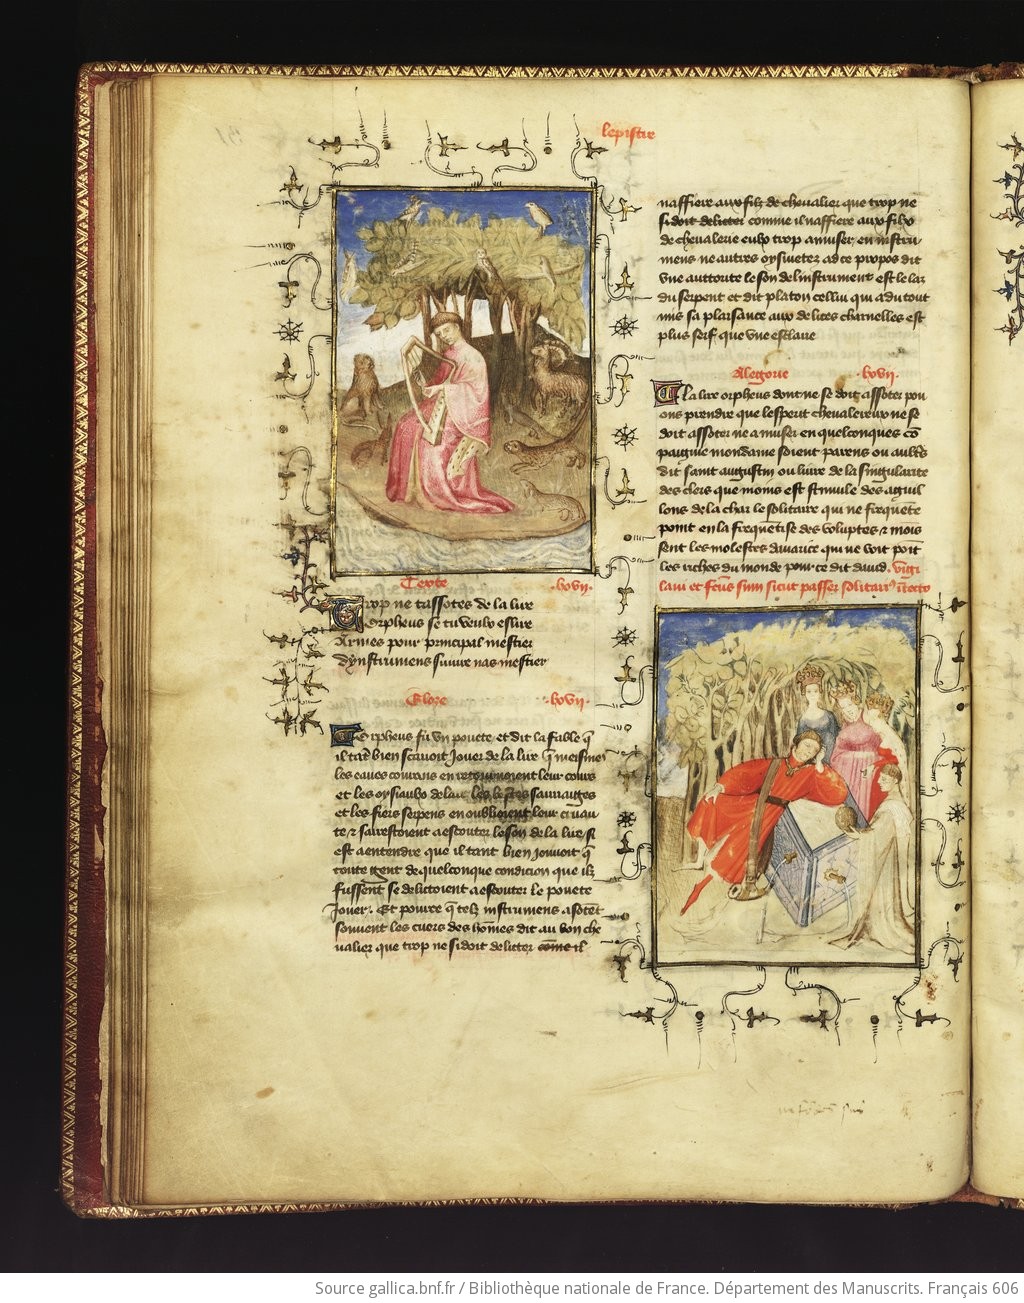 lepistre
Texte .lxvii.
Trop ne tassotes de la lire
Orpheus se tu veulx eslire
Armes pour principal mestier
Dynstrumens suivre nas mestier
Glose .lxvii.
Orpheus fu un pouete et dit la fable q̄
il tāt bien scavoit jouer de la lire q̄ meismes
les eaues courans en retournoient leur cours
et les oysiaulx de lair les bestes sauvaiges
et les fiers serpens en oublioient leur cruau
te / sarrestoient a escouter le son de la lire / si
est a entendre que il tant bien jouoit q̄
toute gent de quelconque condicion que ilz
fussent se delictoient a escouter le pouete
jouer. Et pource q̄ telz instrumens asotēt
souvent les cuers des hōmes dit au bon che
valier que trop ne si doit delicter cōme il
naffiere aux filz de chevalier que trop ne
si doit delicter comme il naffiere aux filz
de chevalerie eulx trop amuser en instru
mens ne autres oysivetez ad ce propos dit
une auttorite le son de linstrument est le laz
du serpent et dit platon cellui qui a du tout
mis sa plaisance aux delices charnelles est
plus serf que une esclave
Alegorie .lxvii.
La lire orpheus dont ne se doit assoter pou
ons prendre que lesperit chevalereux ne se
doit assoter ne amuser en quelconques cō
paignie mondaine soient parens ou aultˢ
dit saint augustin ou livre de la singularite
des clers que moins est stimule des aguil
lons de la char le solitaire qui ne frequente
point en la frequentise des voluptes & mois
sent les molestes davarice qui ne voit poīt
les riches du monde pour ce dit david. Vigi
lavi et factus sum sicut passer solitariꝰ ī tecto
Source gallica.bnf.fr / Bibliothèque nationale de France. Département des Manuscrits. Français 606